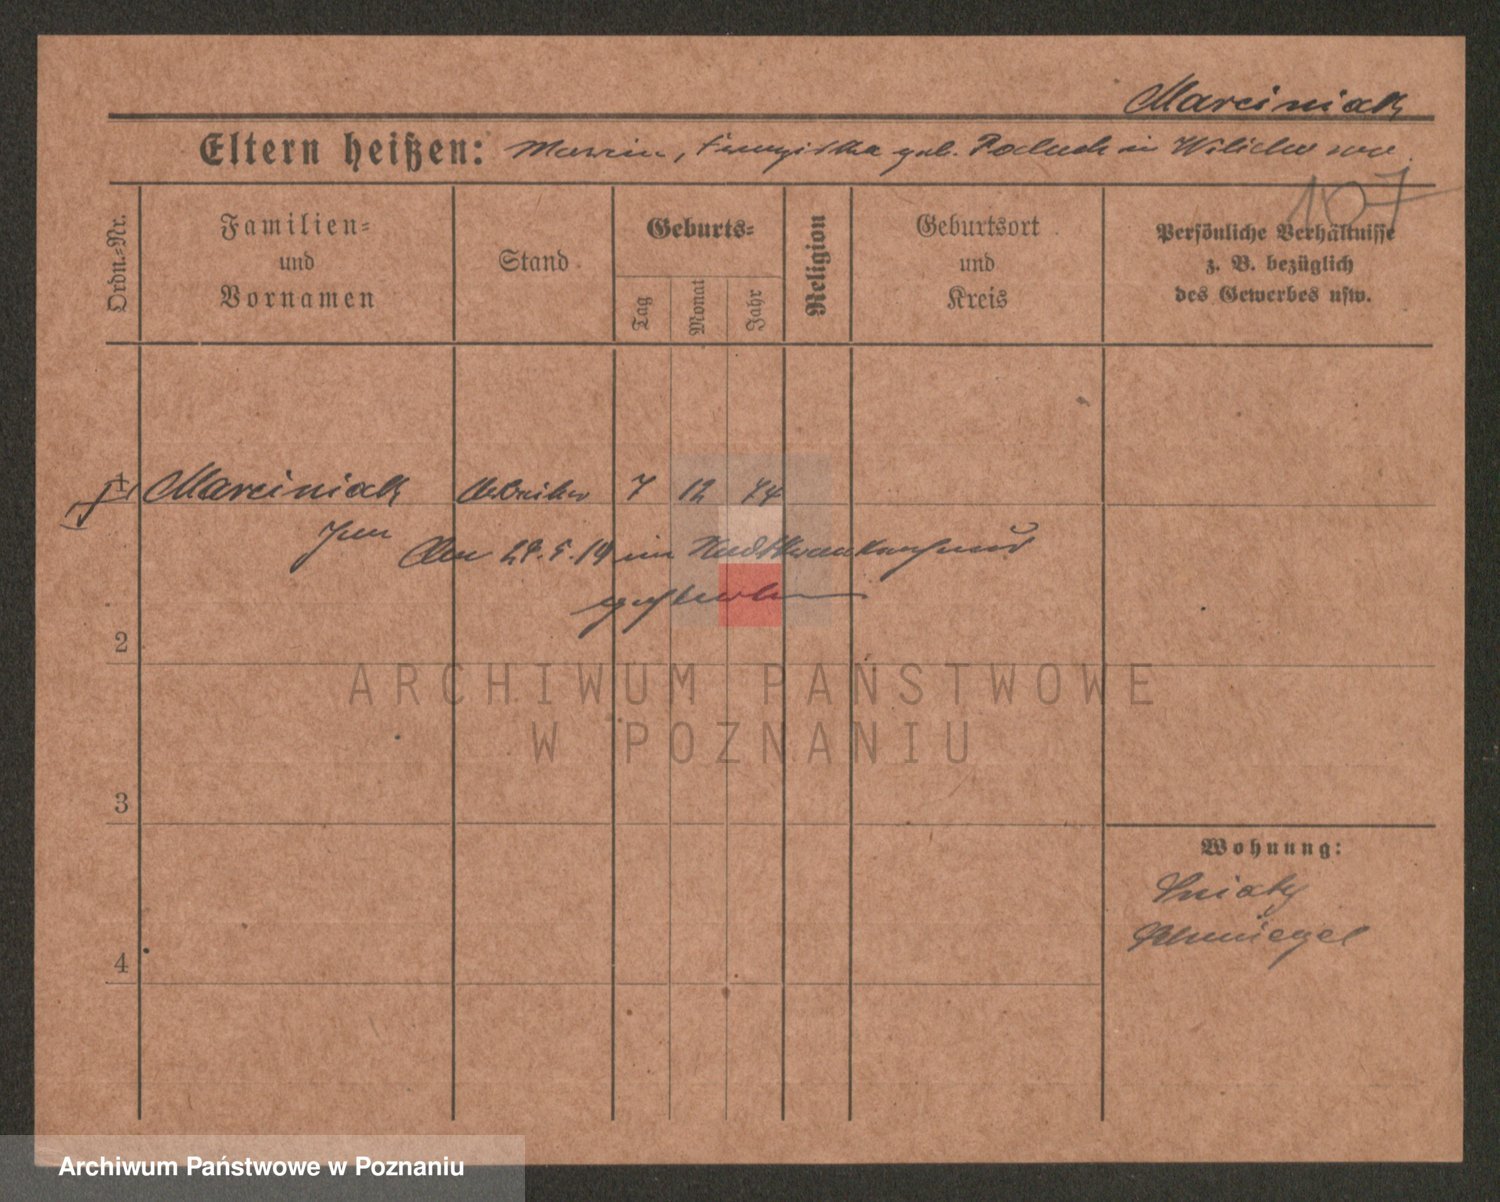 Marciniak
Eltern heißen: Marcin, Franziska geb. in
107
Ordn.=Nr.
Familien=
und
Vornamen
Stand
Geburts=
Tag
Monat
Jahr
Religion
Geburtsort
und
Kreis
Persönliche Verhältnisse
z. B. bezüglich
des Gewerbes usw.
1 Marciniak Arbeiter 7 12 74
Jan
Am im
gestorben
2
3
4
Wohnung:
Sniaty
Schmiegel
ARCHIWUM PAŃSTWOWE
W POZNANIU
Archiwum Państwowe w Poznaniu